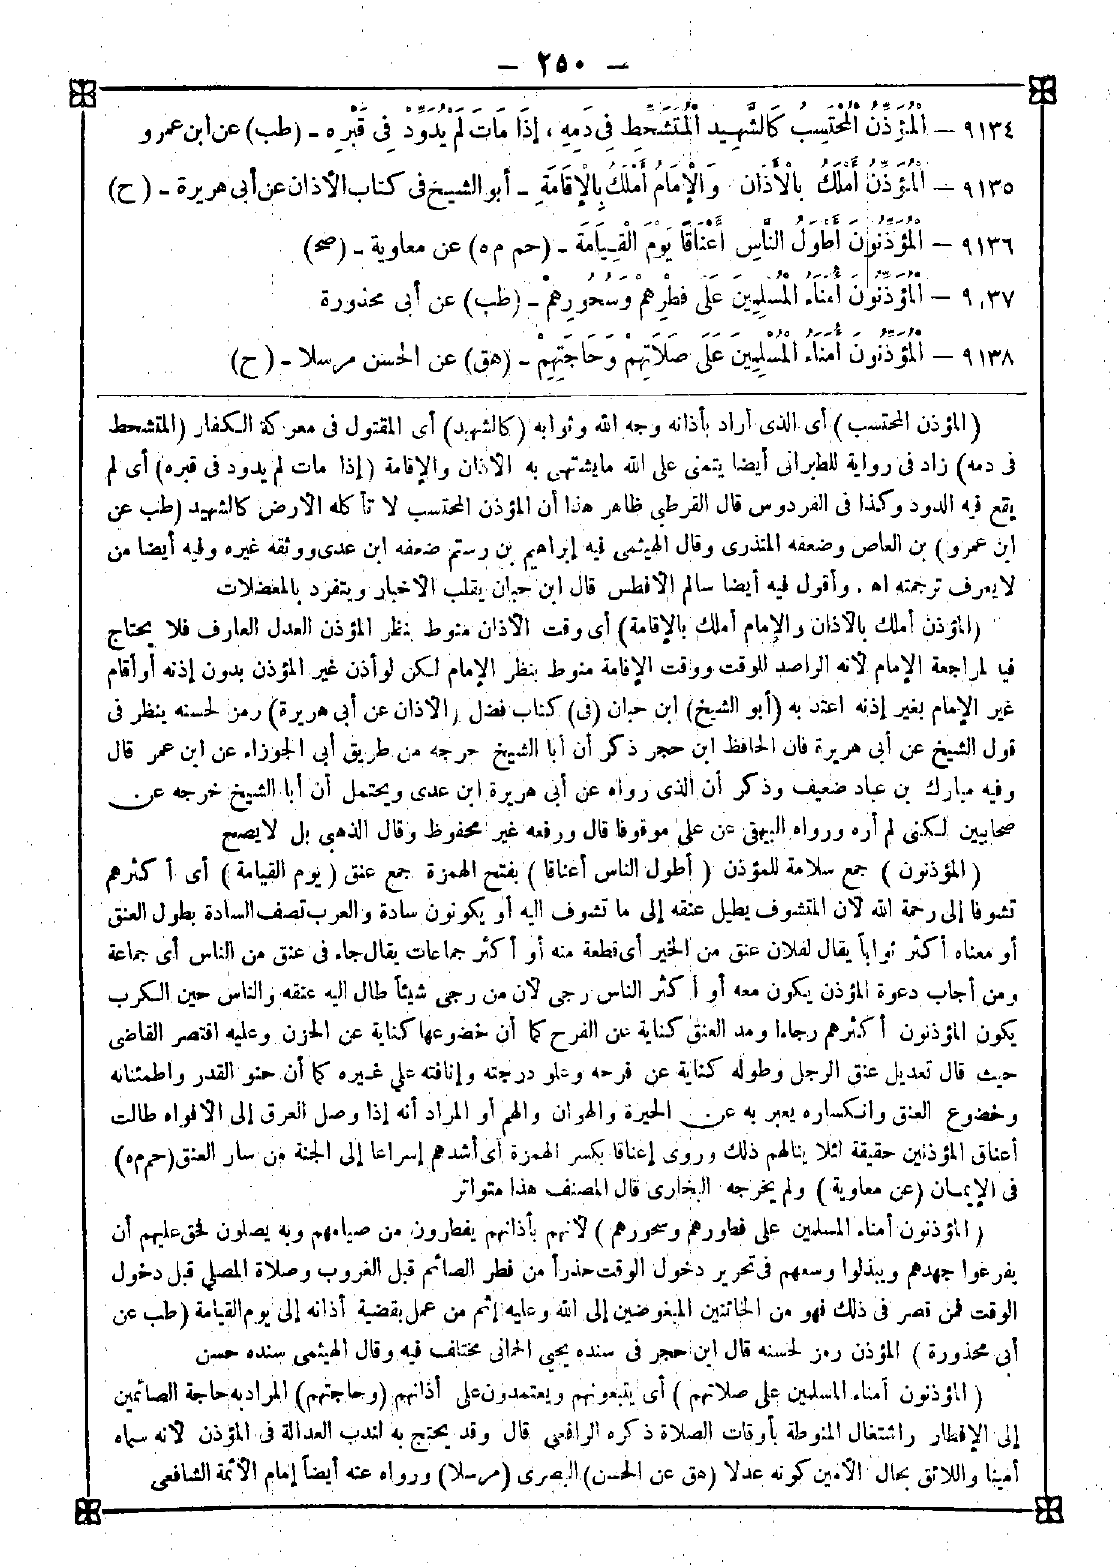 — ٢٥٠ —
٩١٣٤ — الْمُؤَذِّنُ الْمُحْتَسِبُ كَالشَّهِيدِ الْمُتَشَحِّطِ فِى دَمِهِ ، إِذَا مَاتَ لَمْ يُدَوَّدْ فِى قَبْرِهِ - (طب) عن ابن عمرو
٩١٣٥ — الْمُؤَذِّنُ أَمْلَكُ بِالْأَذَانِ وَالْإِمَامُ أَمْلَكُ بِالْإِقَامَةِ - أبو الشيخ فى كتاب الأذان عن أبى هريرة - (ح)
٩١٣٦ — الْمُؤَذِّنُونَ أَطْوَلُ النَّاسِ أَعْنَاقًا يَوْمَ الْقِيَامَةِ - (حم م ه) عن معاوية - (صح)
٩٠٣٧ — الْمُؤَذِّنُونَ أُمَنَاءُ الْمُسْلِمِينَ عَلَى فِطْرِهِمْ وَسَحُورِهِمْ - (طب) عن أبى محذورة
٩١٣٨ — الْمُؤَذِّنُونَ أُمَنَاءُ الْمُسْلِمِينَ عَلَى صَلَاتِهِمْ وَحَاجَتِهِمْ - (هق) عن الحسن مرسلا - (ح)
(المؤذن المحتسب) أى الذى أراد بأذانه وجه الله وثوابه (كالشهيد) أى المقتول فى معركة الكفار (المتشحط
فى دمه) زاد فى رواية للطبرانى أيضا يتمنى على الله مايشتهى به الأذان والإقامة (إذا مات لم يدود فى قبره) أى لم
يقع فيه الدود وكذا فى الفردوس قال القرطبى ظاهر هذا أن المؤذن المحتسب لا تأكله الأرض كالشهيد (طب عن
ابن عمرو) بن العاص وضعفه المنذرى وقال الهيثمى فيه إبراهيم بن رستم ضعفه ابن عدى ووثقه غيره وفيه أيضا من
لايعرف ترجمته اه . وأقول فيه أيضا سالم الأفطس قال ابن حبان يقلب الأخبار ويتفرد بالمعضلات
(المؤذن أملك بالأذان والإمام أملك بالإقامة) أى وقت الأذان منوط بنظر المؤذن العدل العارف فلا يحتاج
فيها لمراجعة الإمام لأنه الراصد للوقت ووقت الإقامة منوط بنظر الإمام لكن لو أذن غير المؤذن بدون إذنه أو أقام
غير الإمام بغير إذنه اعتد به (أبو الشيخ) ابن حبان (فى) كتاب فضل (الأذان عن أبى هريرة) رمز لحسنه ينظر فى
قول الشيخ عن أبى هريرة فان الحافظ ابن حجر ذكر أن أبا الشيخ خرجه من طريق أبى الجوزاء عن ابن عمر قال
وفيه مبارك بن عباد ضعيف وذكر أن الذى رواه عن أبى هريرة ابن عدى ويحتمل أن أبا الشيخ خرجه عن
صحابيين لكنى لم أره ورواه البيهقى عن على موقوفا قال ورفعه غير محفوظ وقال الذهبى بل لايصح
(المؤذنون) جمع سلامة للمؤذن (أطول الناس أعناقا) بفتح الهمزة جمع عنق (يوم القيامة) أى أكثرهم
تشوفا إلى رحمة الله لأن المتشوف يطيل عنقه إلى ما تشوف اليه أو يكونون سادة والعرب تصف السادة بطول العنق
أو معناه أكثر ثواباً يقال لفلان عنق من الخير أى قطعة منه أو أكثر جماعات يقال جاء فى عنق من الناس أى جماعة
ومن أجاب دعوة المؤذن يكون معه أو أكثر الناس رجى لأن من رجى شيئاً طال اليه عنقه والناس حين الكرب
يكون المؤذنون أكثرهم رجاءا ومد العنق كناية عن الفرح كما أن خضوعها كناية عن الحزن وعليه اقتصر القاضى
حيث قال تعديل عنق الرجل وطوله كناية عن فرحه وعلو درجته وإنافته على غيره كما أن حنو القدر واطمئنانه
وخضوع العنق وانكساره يعبر به عن الحيرة والهوان والهم أو المراد أنه إذا وصل العرق إلى الأفواه طالت
أعناق المؤذنين حقيقة لئلا ينالهم ذلك وروى إعناقا بكسر الهمزة أى أشدهم إسراعا إلى الجنة من سار العنق (حم م ه)
فى الإيمان (عن معاوية) ولم يخرجه البخارى قال المصنف هذا متواتر
(المؤذنون أمناء المسلمين على فطورهم وسحورهم) لأنهم بأذانهم يفطرون من صيامهم وبه يصلون فحق عليهم أن
يفرغوا جهدهم ويبذلوا وسعهم فى تحرير دخول الوقت حذراً من فطر الصائم قبل الغروب وصلاة المصلى قبل دخول
الوقت فمن قصر فى ذلك فهو من الخائنين المبغوضين إلى الله وعليه إثم من عمل بقضية أذانه إلى يوم القيامة (طب عن
أبى محذورة) المؤذن رمز لحسنه قال ابن حجر فى سنده يحيى الحمانى مختلف فيه وقال الهيثمى سنده حسن
(المؤذنون أمناء المسلمين على صلاتهم) أى يتبعونهم ويعتمدون على أذانهم (وحاجتهم) المراد به حاجة الصائمين
إلى الإفطار واشتغال المنوطة بأوقات الصلاة ذكره الرافعى قال وقد يحتج به لندب العدالة فى المؤذن لأنه سماه
أمينا واللائق بحال الأمين كونه عدلا (هق عن الحسن) البصرى (مرسلا) ورواه عنه أيضاً إمام الأئمة الشافعى